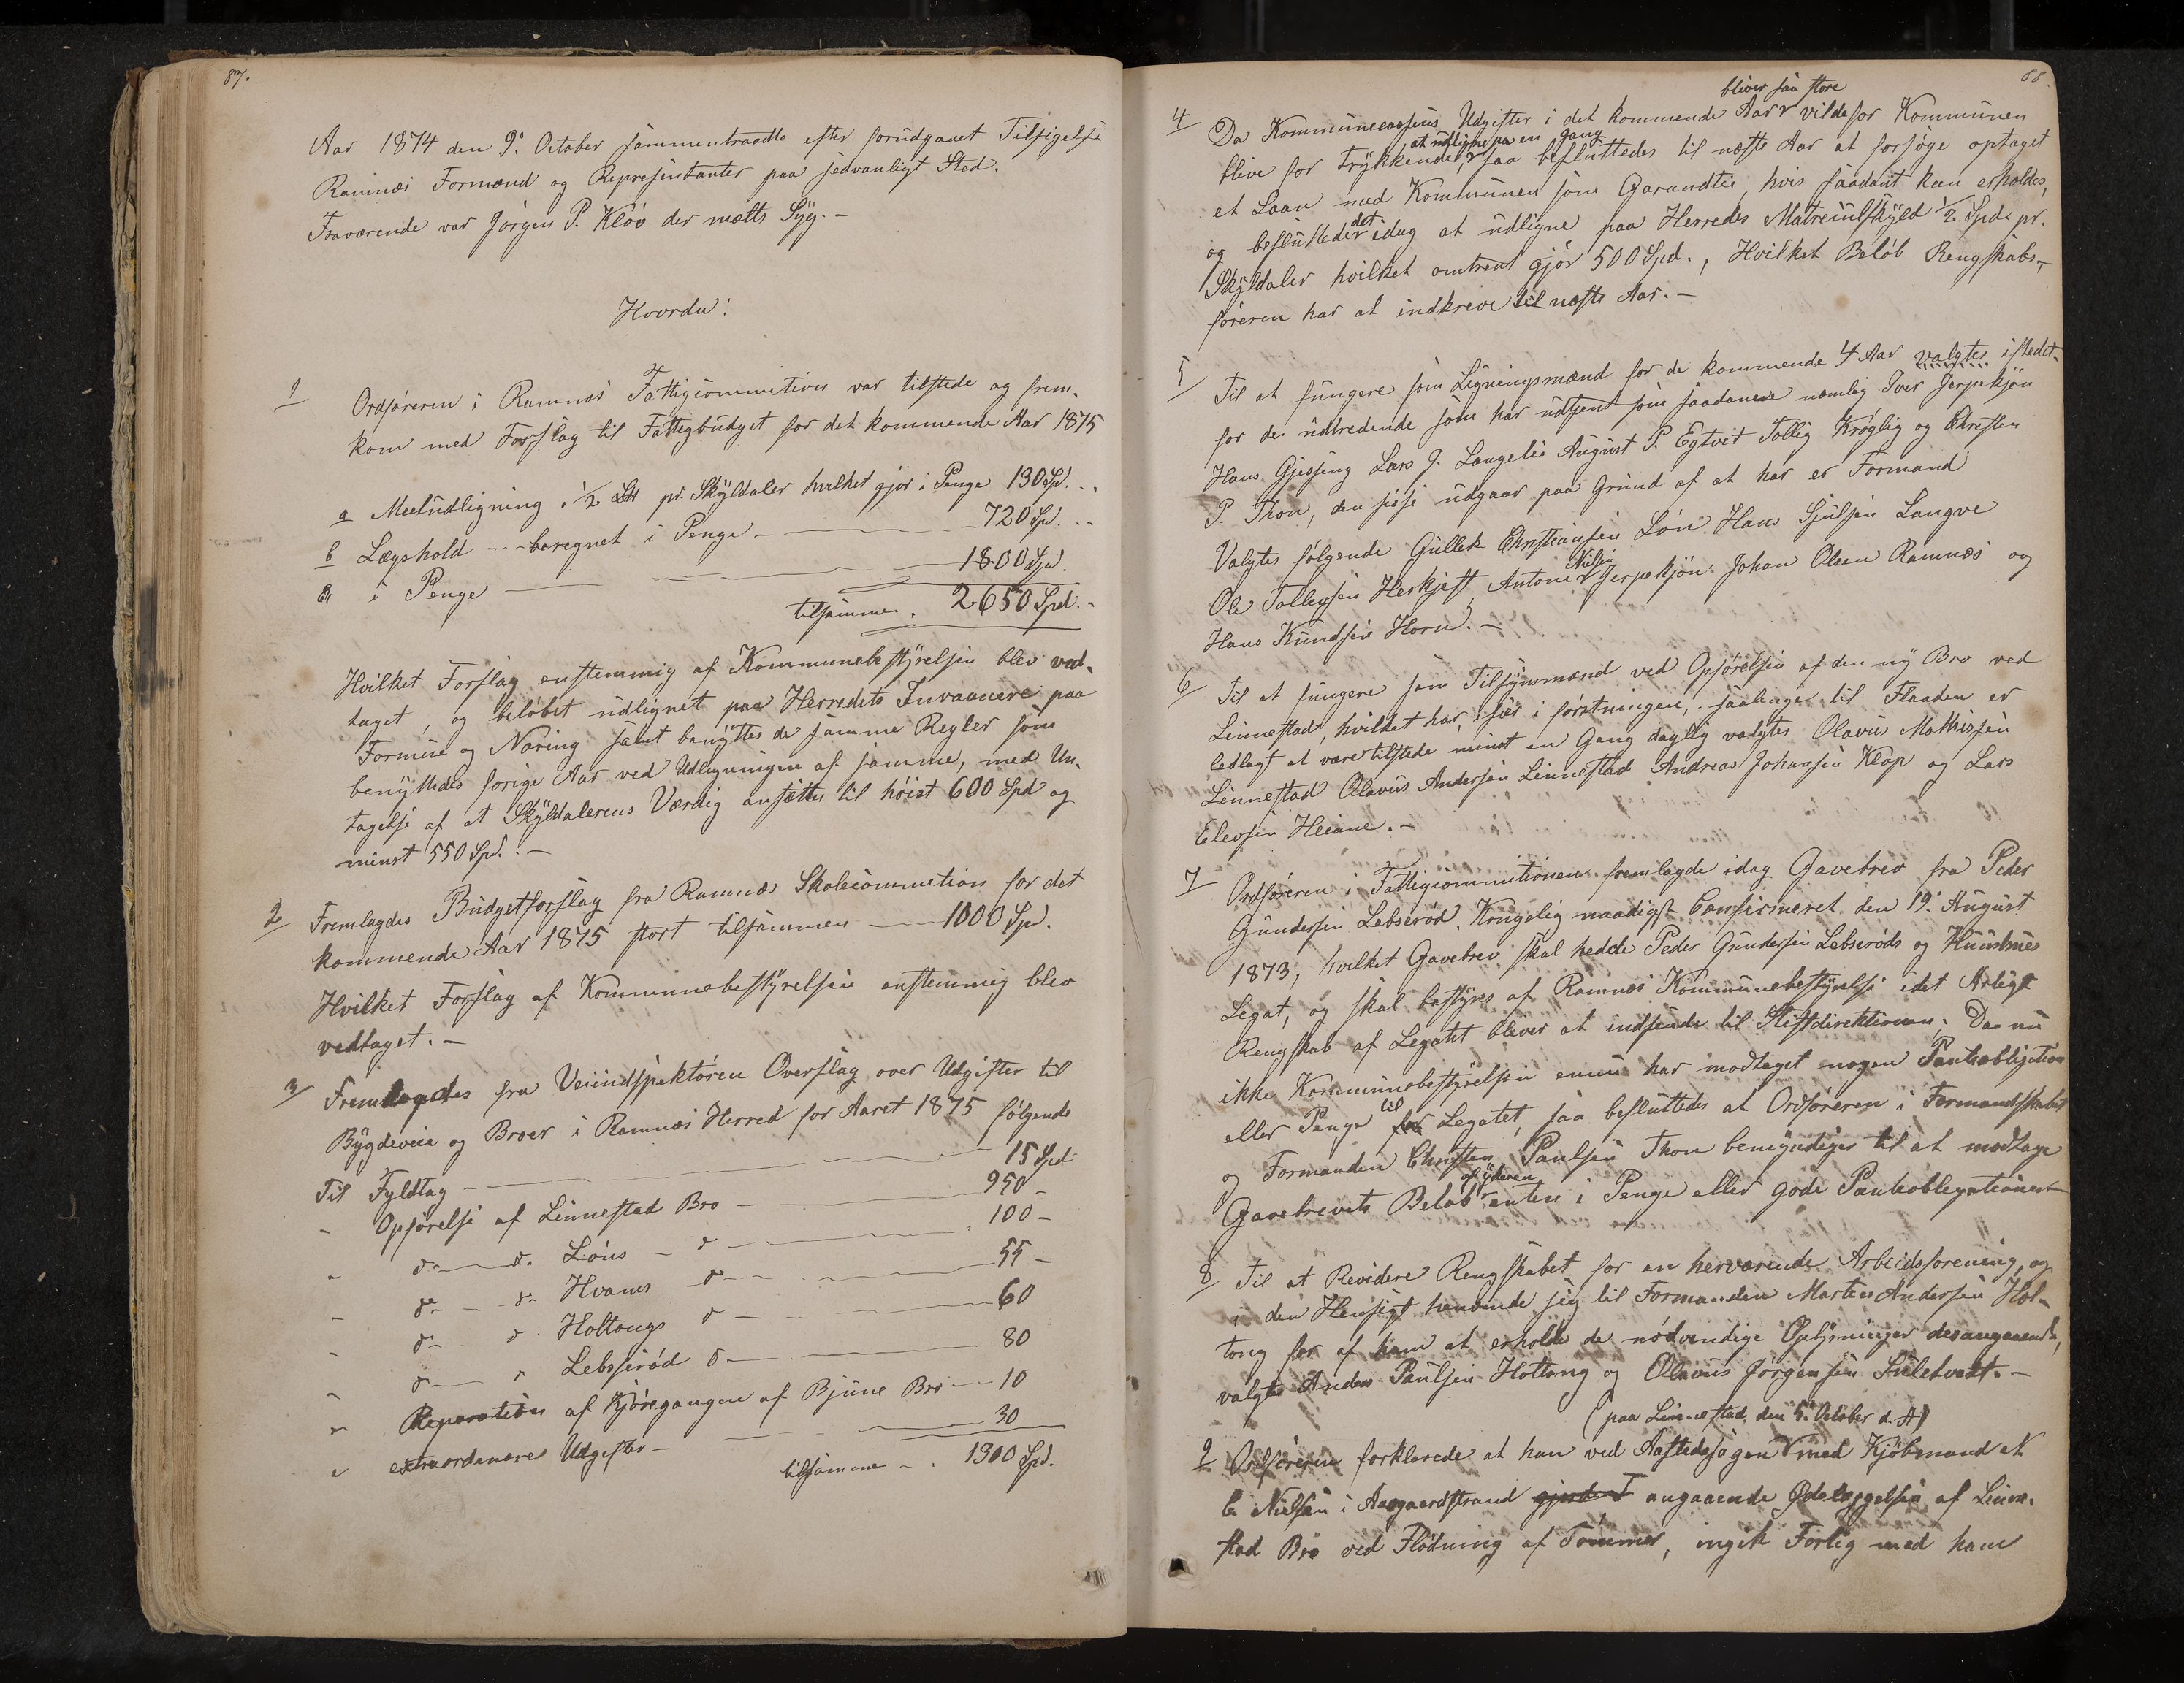 87.
Aar 1874 den 9. October sammentraadte efter forudgaaet Tilsigelse
Ramnæs Formænd og Repræsentanter paa sedvanligt Sted.
Fraværende var Jørgen P. Kløv der mælte Syg. -
Hvorda:
1 Ordføreren i Ramnæs Fattigcommition var tilstede og frem-
kom med Forslag til Fattigbudget for det kommende Aar 1875
a Meludligning i 1/2 pr. Skyldaler hvilket gjør i Penge 130 Sp. - -
b Lægshold - - beregnet i Penge - 720 Spd. - -
i Penge 1800 Spd.
tilsammen . 2650 Spd. -
Hvilket Forslag enstemmig af Kommunebestyrelsen blev ved-
taget, og beløbet udlignet paa Herredets Invaanere paa
Formue og Næring samt benyttes de samme Regler som
benyttedes forige Aar ved Udligningen af samme, med Un-
tagelse af at Skyldalerens Værdig ansættes til høist 600 Spd og
minst 550 Spd. -
2 Fremlagdes Budgetforslag fra Ramnæs Skolecommition for det
kommende Aar 1875 stort tilsammen - 1000 Sp.
Hvilket Forslag af Kommunebestyrelsen enstemmig blev
vedtaget. -
3 Fremlagdes fra Veiindspektøren Overslag over Udgifter til
Bygdeveie og Broer i Ramnæs Herred for Aaret 1875 følgende
Til Fyldtag - 15 Spd
- Opførelse af Linnestad Bro - 950 -
- do - do. Løns - do - 100 -
- do - do Hvams do - 55 -
- do - do Holtongs do - 60
- do - do Lebserød do - 80
- Reparation af Kjøregangen af Bjune Bro - 10
- extraordenære Udgifter - 30
tilsammen - . 1300 Spd.
88
4 Da Kommunecassens Udgifter i det kommende Aar bliver saa store vilde for Kommunen
blive for trykkende, at udligne paa en gang saa besluttedes til næste Aar at forsøge optaget
et Laan med Kommunen som Garandtie, hvis saadant kan erholdes,
og besluttedes det idag at udligne paa Herredes Matreculskyld 1/2 Spd. pr.
Skyldaler hvilket omtrent gjør 500 Spd., Hvilket Beløb Rengskabs-
føreren har at indkreve til næste Aar. -
5 Til at fungere som Ligningsmænd for de kommende 4 Aar valgtes istedet-
for de udtredende som har udtjent som saadanne nemlig Iver Jerpekjøn
Hans Gjessing Lars J. Langelie August P. Egtvet Tollig Krøglig og Christen
P. Thon, den sisse udgaar paa Grund af at har er Formand
Valgtes følgende Gullik Christiansen Løn Hans Sjulsen Langve
Ole Tollevsen Herkjest Anton Nilsen Jerpekjøn Johan Olsen Ramnæs og
Hans Knudsen Horn. -
6 Til at fungere som Tilsynsmænd ved Opførelsen af den ny Bro ved
Linnestad, hvilket har, især i førstningen, saalenge til Flaaden er
ledlagt at være tilstede minst en Gang daglig valgtes Olavus Mathisen
Linnestad Olavus Andersen Linnestad Andreas Johansen Klop og Lars
Elevsen Heiane. -
7 Ordføreren i Fattigcommitionen fremlagde idag Gavebrev fra Peder
Gundersen Lebserød. Kongelig naadigst Confirmeret den 19. August
1873, hvilket Gavebrev skal hedde Peder Gundersen Lebserøds og Huustrues
Legat, og skal bestyres af Ramnæs Kommunebestyrelse idet Arligt
Rengskab af Legatet bliver at indsende til Stiftdirektionen; Da nu
ikke Kommunebestyrelsen ennu har modtaget nogen Panteobligation
eller Penge for til Legatet, saa besluttedes at Ordføreren i Formandskabet
og Formanden Christen Paulsen Thon bemyndiges til at modtage
Gavebrevets Beløb af yderen enten i Penge eller gode Panteobligationer
8 Til at Revidere Rengskabet for en herværende Arbeidsforening, og
i den Hensigt henvende sig til Formanden Marten Andersen Hol-
tong for af ham at erholde de nødvendige Oplysninger desangaaende,
valgtes Anders Paulsen Holtong og Olavus Jørgensen Sulebvedt. -
(paa Linnestad den 5. October d. A)
9 Ordføreren forklarede at han ved Aastedssagen med Kjøbmand
C Nielsen i Aasgaardstrand angaaende Ødelæggelsen af Linne-
stad Bro ved Flødning af Tømmer, ingik Forlig med ham